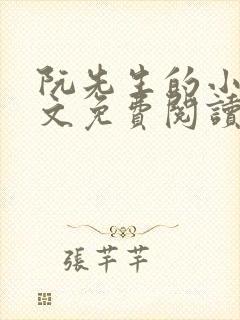 阮先生的小
文免費閱讀
張芊芊